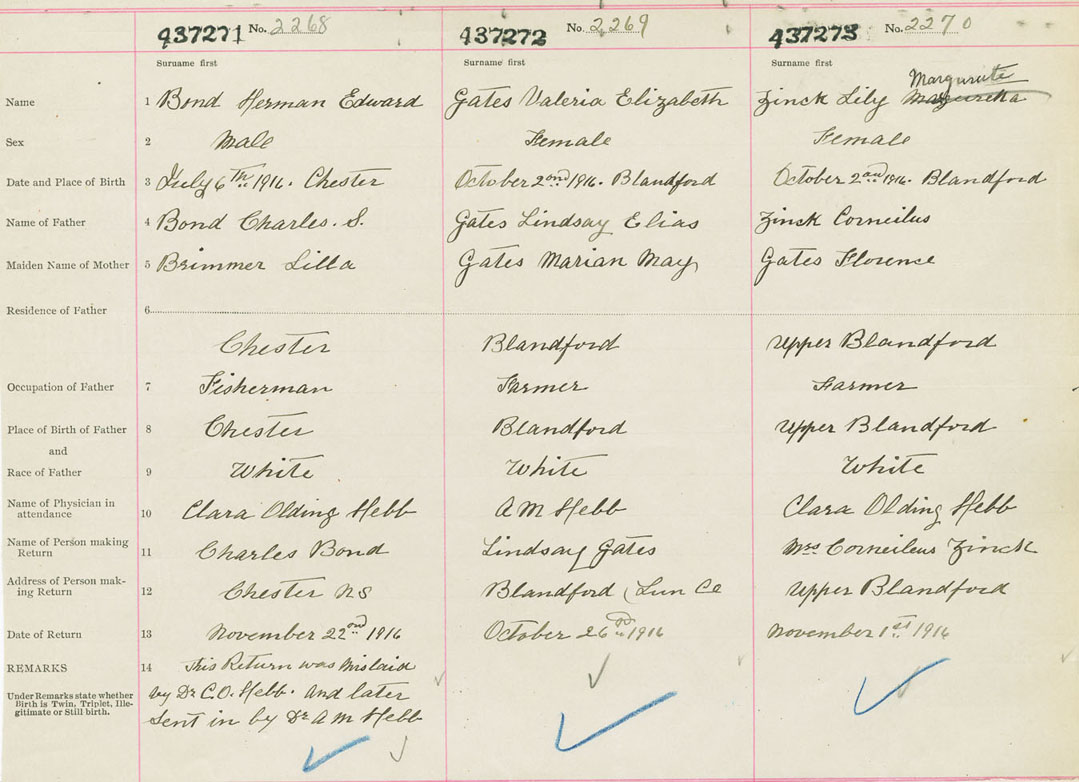 437271 No. 2268 437272 No. 2269 437273 No. 2270
Surname first Surname first Surname first
Margurite
Name 1 Bond Herman Edward Gates Valeria Elizabeth Zinck Lily
Sex 2 Male Female Female
Date and Place of Birth 3 July 6th 1916. Chester October 2nd 1916. Blandford October 2nd 1916. Blandford
Name of Father 4 Bond Charles. S. Gates Lindsay Elias Zinck Corneilus
Maiden Name of Mother 5 Brimmer Lilla Gates Marian May Gates Florence
Residence of Father 6
Chester Blandford Upper Blandford
Occupation of Father 7 Fisherman Farmer Farmer
Place of Birth of Father 8 Chester Blandford Upper Blandford
and
Race of Father 9 White White White
Name of Physician in
attendance 10 Clara Olding Hebb A M Hebb Clara Olding Hebb
Name of Person making
Return 11 Charles Bond Lindsay Gates Mrs Corneileus Zinck
Address of Person mak-
ing Return 12 Chester NS Blandford Lun Co Upper Blandford
Date of Return 13 November 22nd 1916 October 26 1916 November 1st 1916
REMARKS 14 This Return was Mislaid
Under Remarks state whether
Birth is Twin, Triplet, Ille-
gitimate or Still birth.
by Dr C.O. Hebb. and later
Sent in by Dr A M Hebb